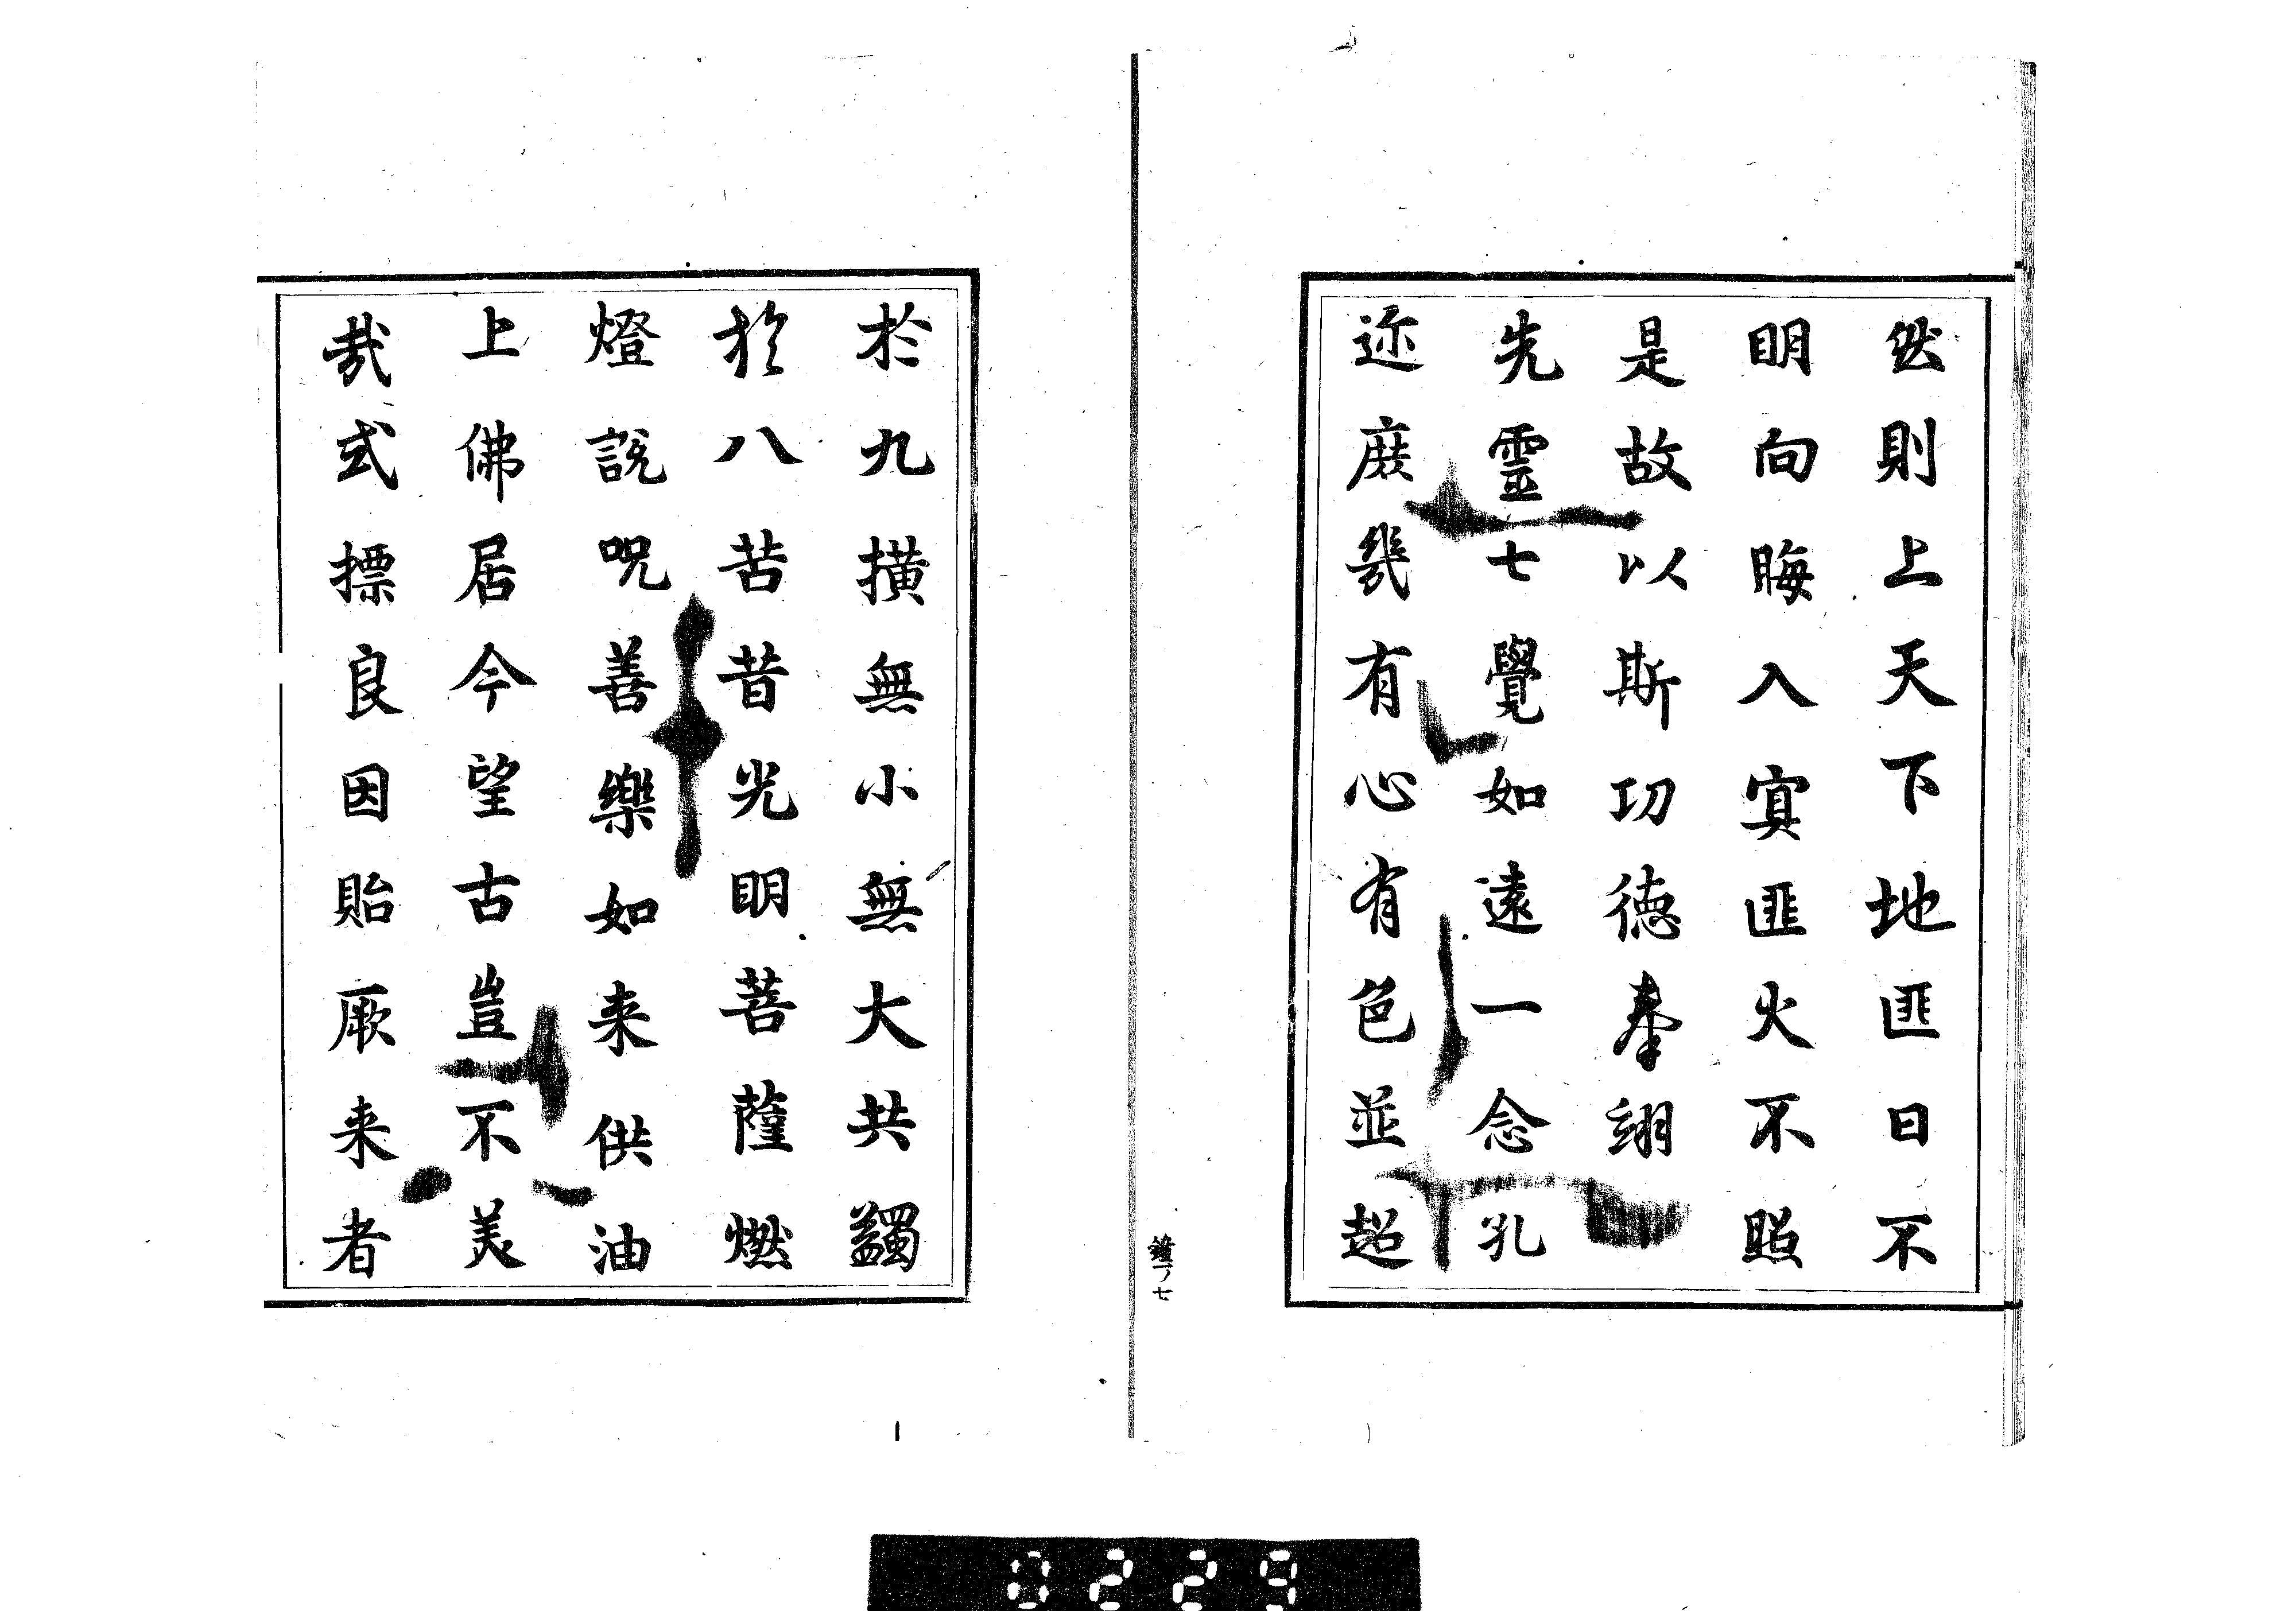 然則上天下地匪日不
明向晦入冥匪火不照
是故以斯功德奉翊
先靈七覺如遠一念孔
迩庶幾有心有色並超
於九横無小無大共蠲
於八苦昔光明菩薩燃
燈說呪善樂如来供油
上佛居今望古豈不美
哉式摽良因貽厥来者
鐘一ノ七
0229